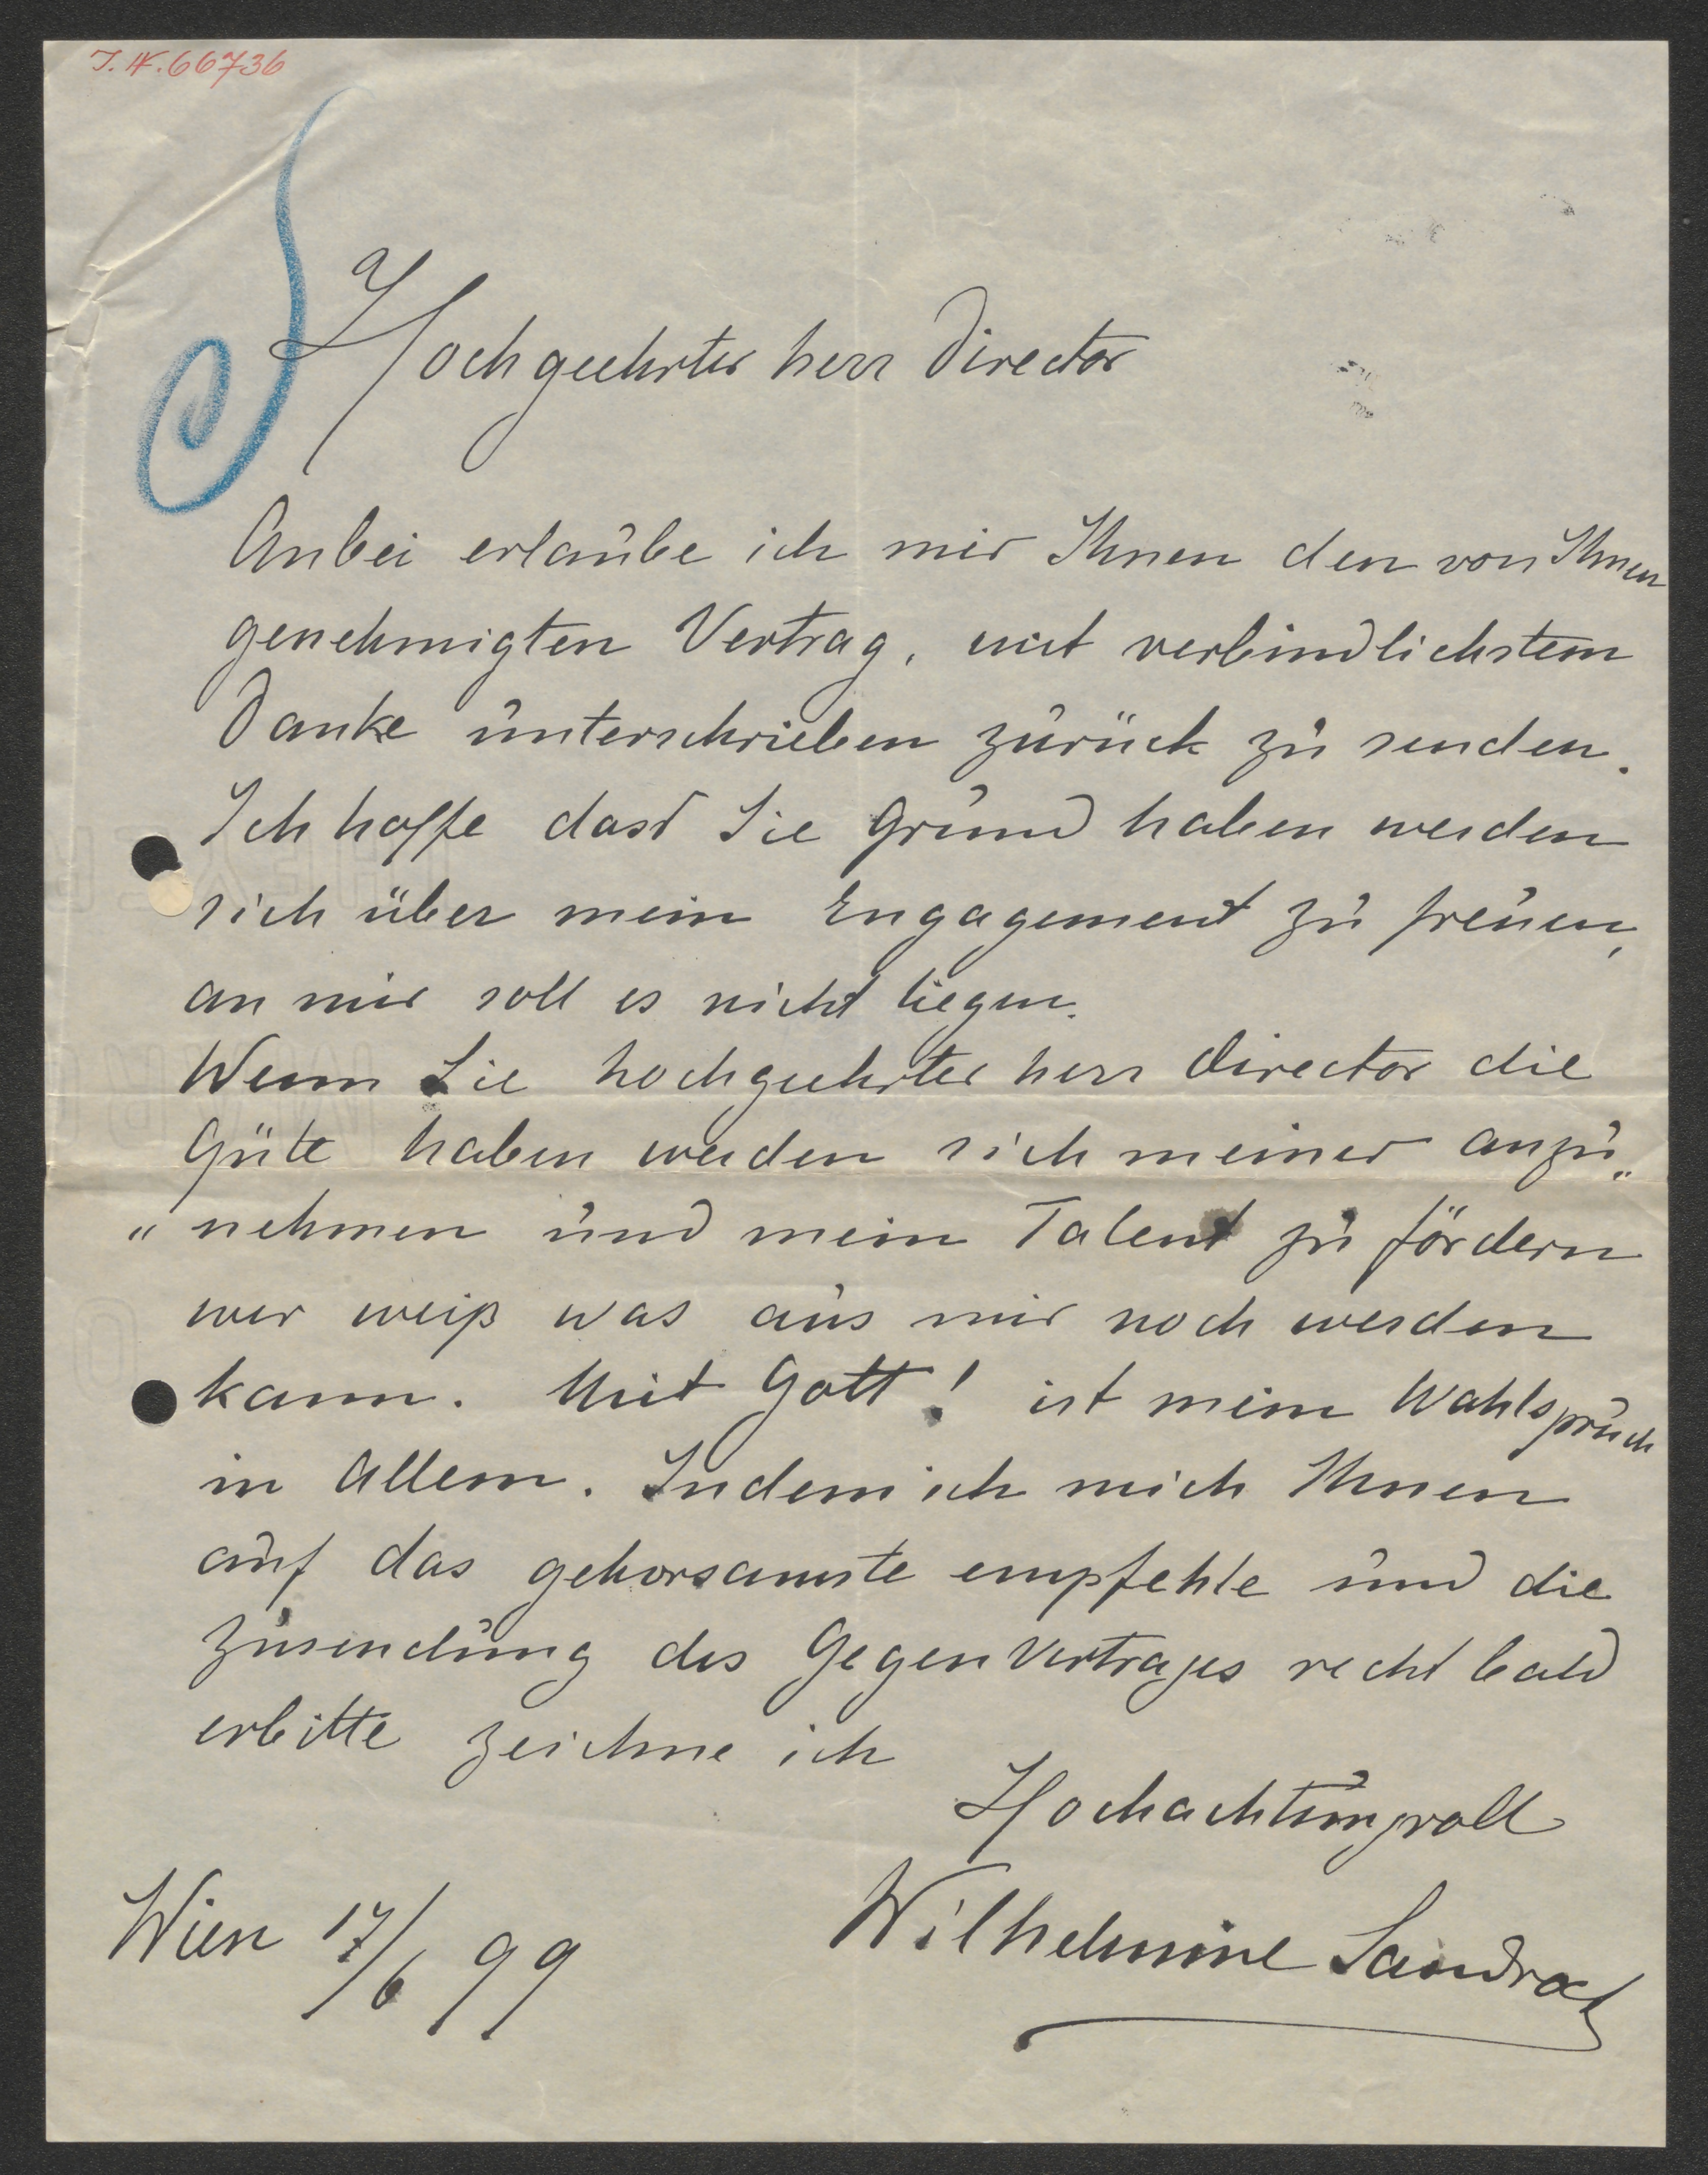 I. N. 66736
Hochgeehrter herr Director
Anbei erlaube ich mir Ihnen den von Ihnen
genehmigten Vertrag, mit verbindlichstem
Danke unterschrieben zurück zu senden.
Ich hoffe dass Sie Grund haben werden
sich über mein Engagement zu freuen,
an mir soll es nicht liegen.
Wenn Sie hochgeehrter herr Director die
Güte haben werden sich meiner anzu„
„nehmen und mein Talent zu fördern
wer weiß was aus mir noch werden
kann. Mit Gott! ist mein Wahlspruch
in Allem. Indem ich mich Ihnen
auf das gehorsamste empfehle und die
Zusendung des Gegenvertrages recht bald
erbitte zeichne ich
Hochachtungvoll
Wilhelmine Sandrock
Wien 17/6 99